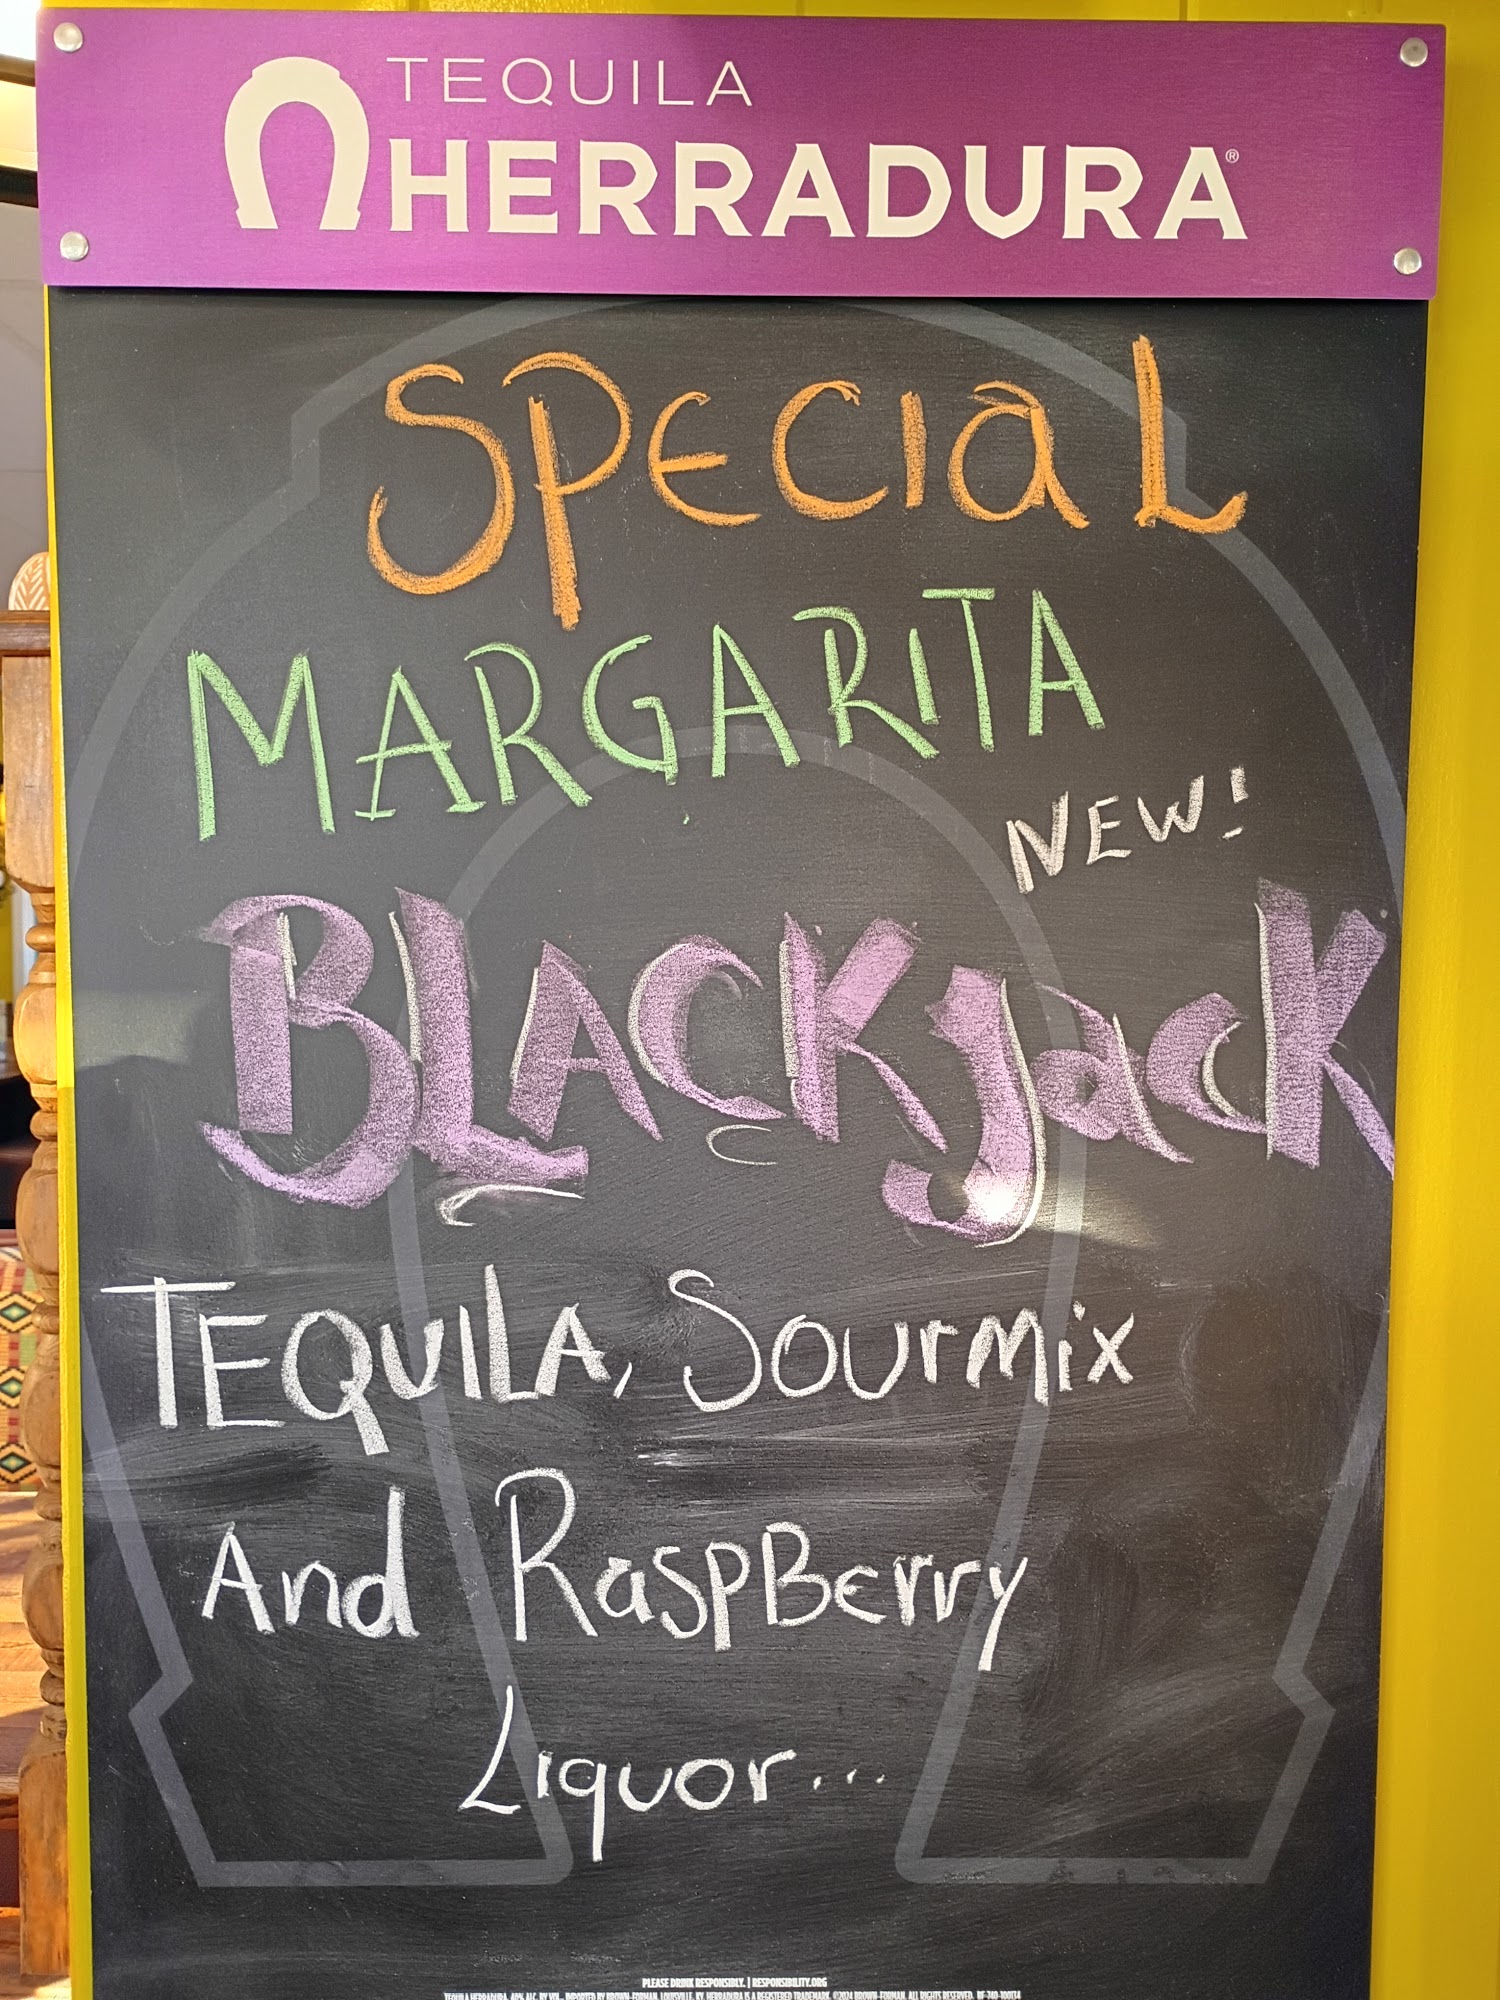 TEQUILA
HERRADURA®
SPECIAL
MARGARITA
NEW!
BLACKJacK
TEQUILA, Sourmix
And RaspBerry
Liquor...
PLEASE DRINK RESPONSIBLY. | RESPONSIBILITY.ORG
TEQUILA HERRADURA, 40% ALC. BY VOL., IMPORTED BY BROWN-FORMAN, LOUISVILLE, KY. HERRADURA IS A REGISTERED TRADEMARK. ©2024 BROWN-FORMAN. ALL RIGHTS RESERVED.